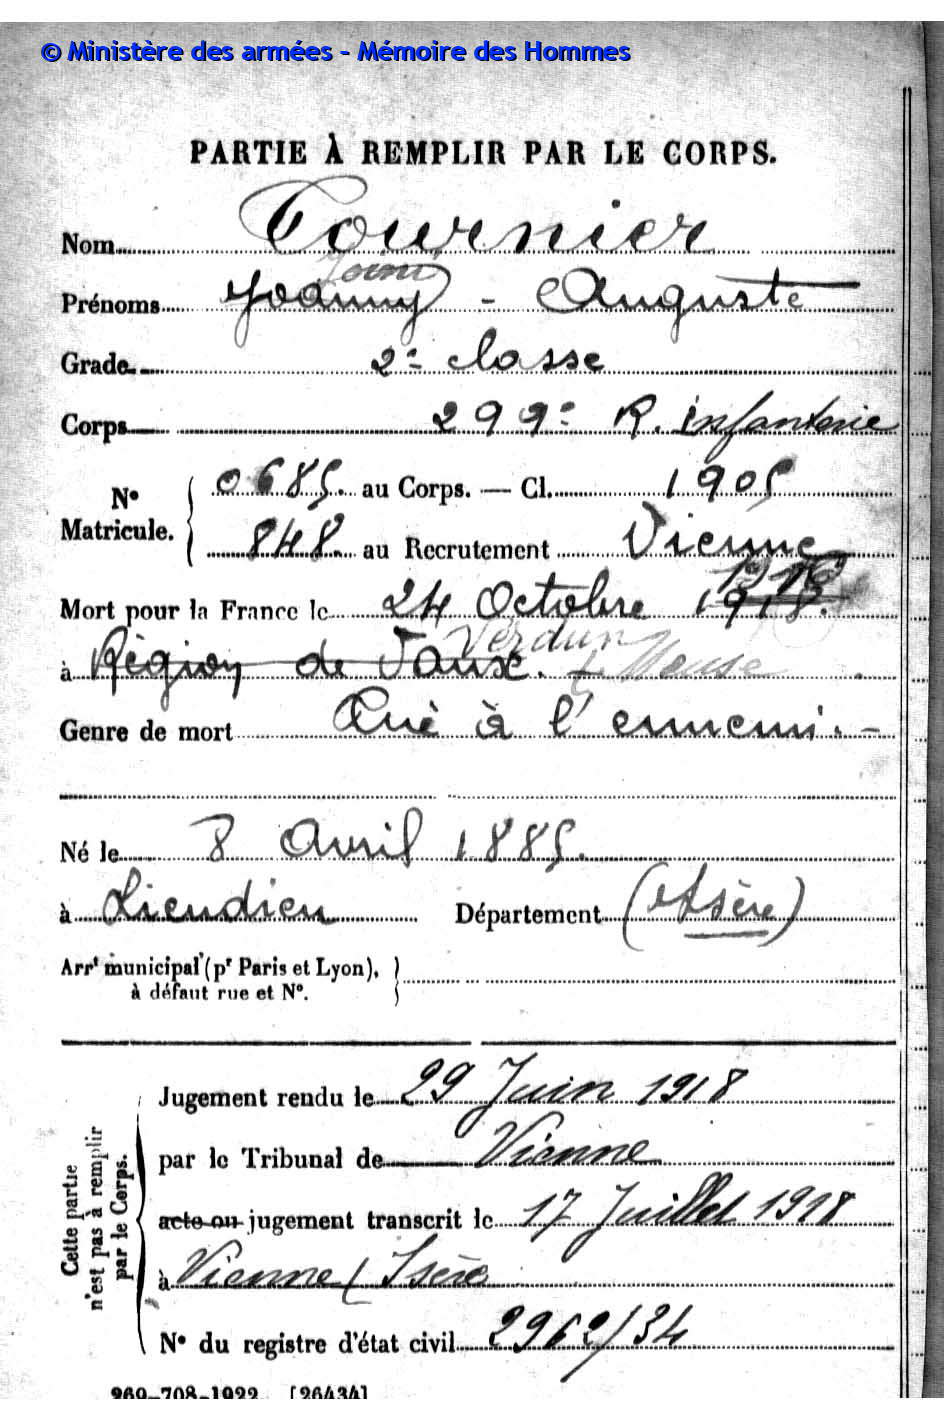 © Ministère des armées - Mémoire des Hommes
PARTIE À REMPLIR PAR LE CORPS.
Nom Tournier
Prénoms Joanny - Auguste
Grade 2e classe
Corps 299e R. infanterie
N° Matricule. 0685. au Corps. — Cl. 1905
848. au Recrutement Vienne
Mort pour la France le 24 Octobre 1918.
Verdun
à Région de Vaux. Meuse
Genre de mort Tué à l'ennemi. -
Né le 8 Avril 1885.
à Lieudieu Département (Isère)
Arrt municipal (pr Paris et Lyon),
à défaut rue et N°.
Cette partie n'est pas à remplir par le Corps.
Jugement rendu le 29 Juin 1918
par le Tribunal de Vienne
acte ou jugement transcrit le 17 Juillet 1918
à Vienne (Isère
N° du registre d'état civil 2962/34
269-708-1922. [26434]